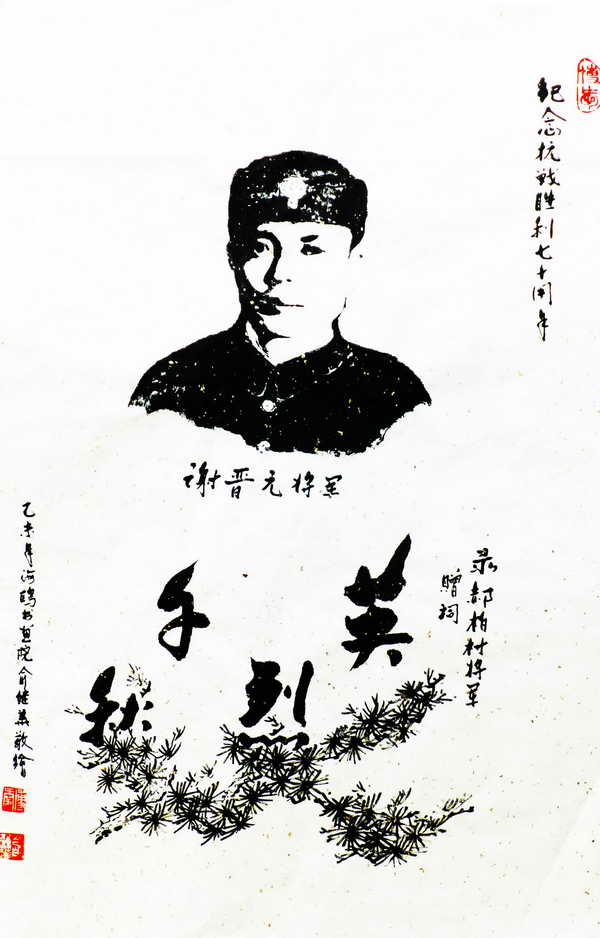 纪念抗战胜利七十周年
谢晋元将军
录郝柏村将军
赠词
英烈千秋
乙未年海鸥书画院俞继燕敬绘